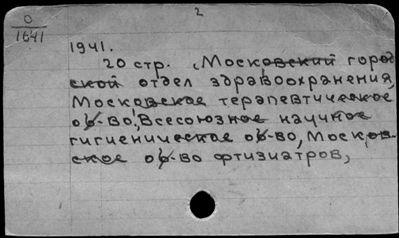 2
О
1641
1941.
20 стр. (Московский город
ской отдел здравоохранения,
Московское терапевтическое
об-во, Всесоюзное научное
гигиеническое об-во, Москов-
ское об-во фтизиатров,